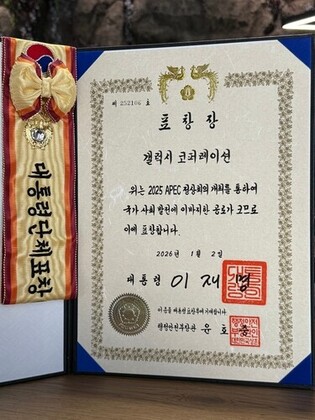 대통령단체표창
제 252106 호
표 창 장
갤럭시 코퍼레이션
위는 2025 APEC 정상회의 개최를 통하여
국가 사회 발전에 이바지한 공로가 크므로
이에 표창합니다.
2026년 1월 2일
대통령 이재명
이 증을 대통령표창부에 기재합니다
행정안전부장관 윤호중